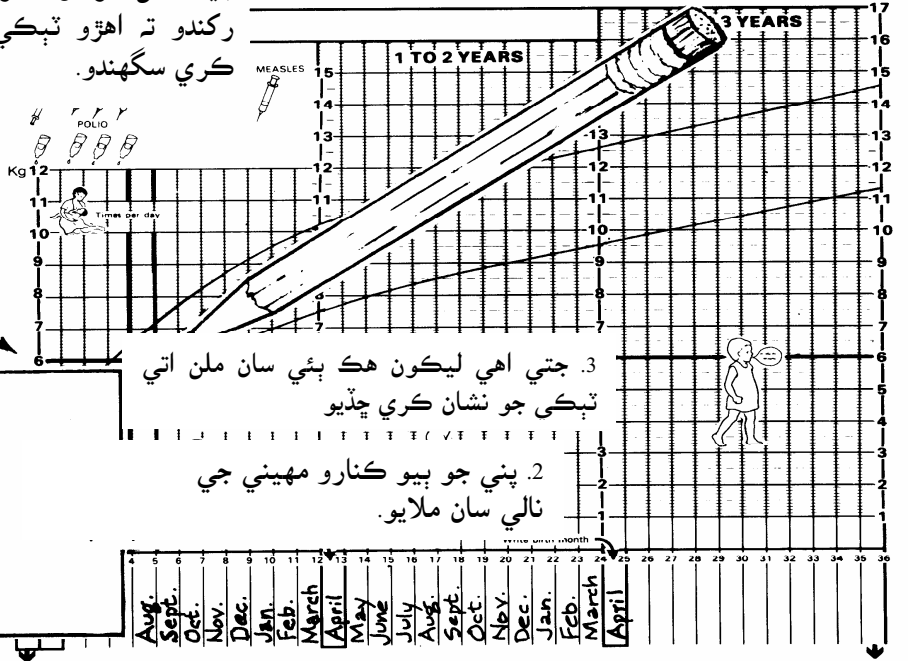 رکندو تہ اهڙو ٽٻڪي
ڪري سگهندو.
MEASLES
POLIO
Times per day
1 TO 2 YEARS
3 YEARS
Kg 12
11
10
9
8
7
6
15
14
13
12
11
10
9
8
7
13
12
11
10
9
8
7
6
5
4
3
2
1
17
16
15
14
13
12
11
10
9
8
7
6
5
4
3
2
1
3. جتي اهي ليڪون هڪ ٻئي سان ملن اتي
ٽٻڪي جو نشان ڪري ڇڏيو
2. پني جو ٻيو ڪنارو مهيني جي
نالي سان ملايو.
Write birth month
4 5 6 7 8 9 10 11 12 13 14 15 16 17 18 19 20 21 22 23 24 25 26 27 28 29 30 31 32 33 34 35 36
Aug. Sept. Oct. Nov. Dec. Jan. Feb. March April May June July Aug. Sept. Oct. Nov. Dec. Jan. Feb. March April